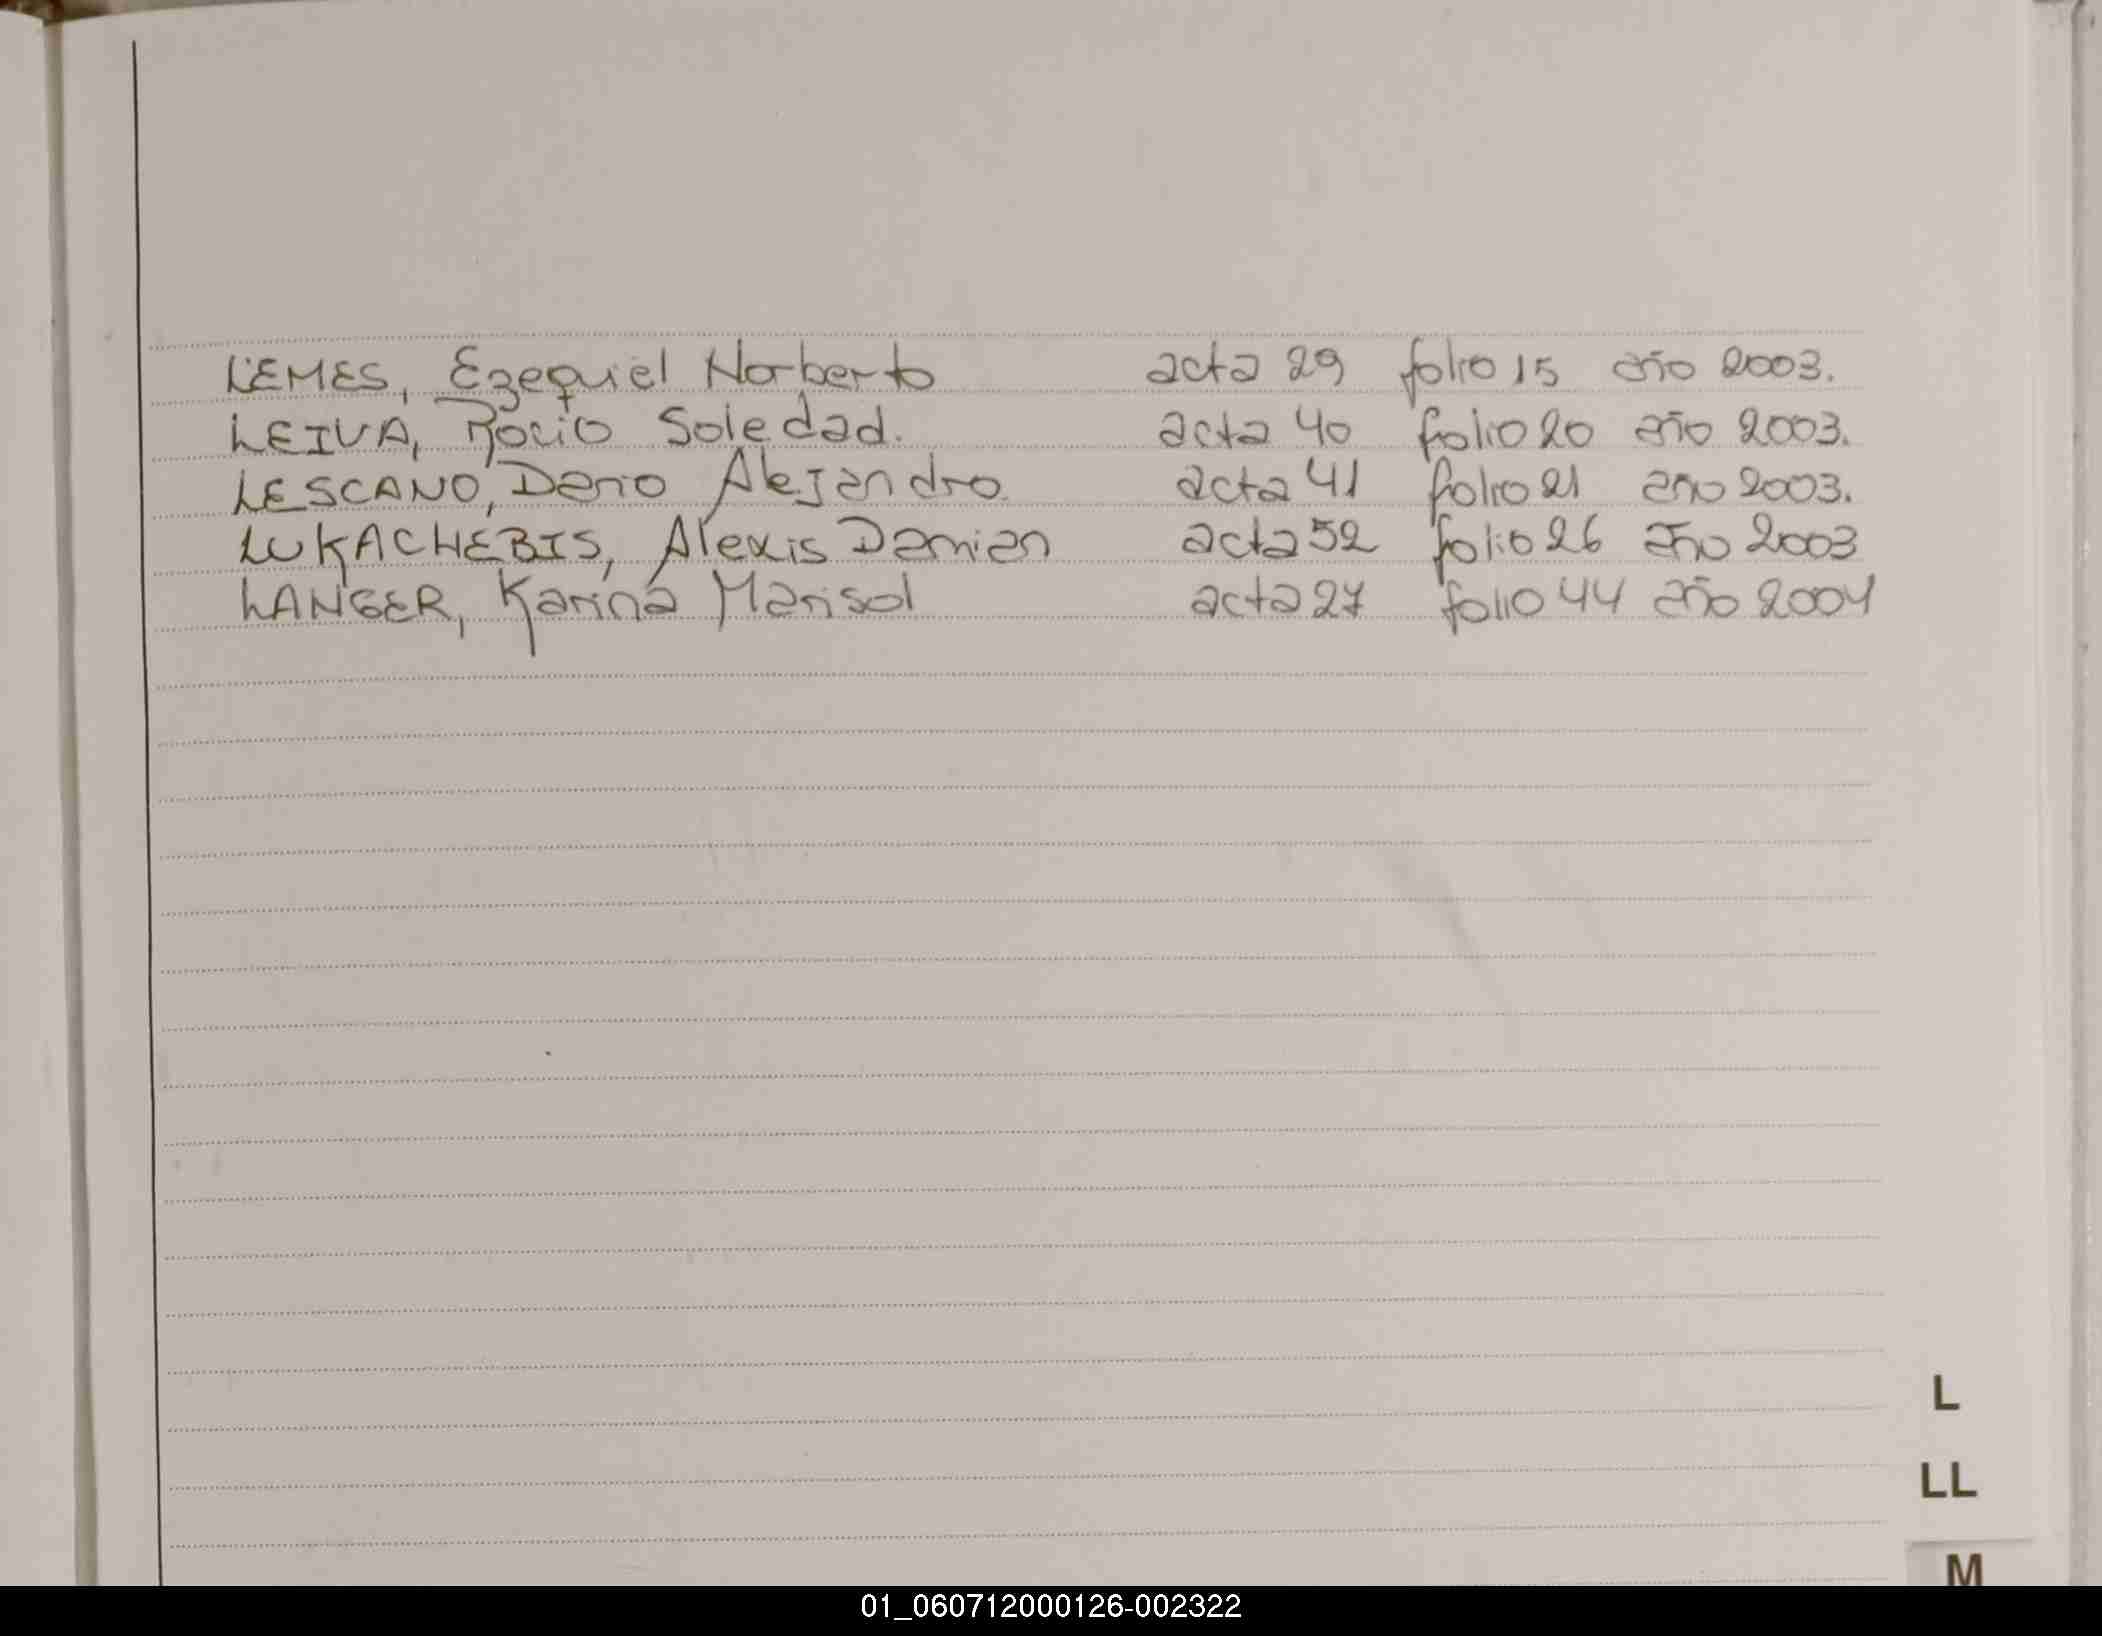 LEMES, Ezequiel Norberto acta 29 folio 15 año 2003.
LEIVA, Rocio Soledad. acta 40 folio 20 año 2003.
LESCANO, Dario Alejandro. acta 41 folio 21 año 2003.
LUKACHEBIS, Alexis Damian acta 52 folio 26 año 2003
LANGER, Karina Marisol acta 27 folio 44 año 2004
L
LL
M
01_060712000126-002322